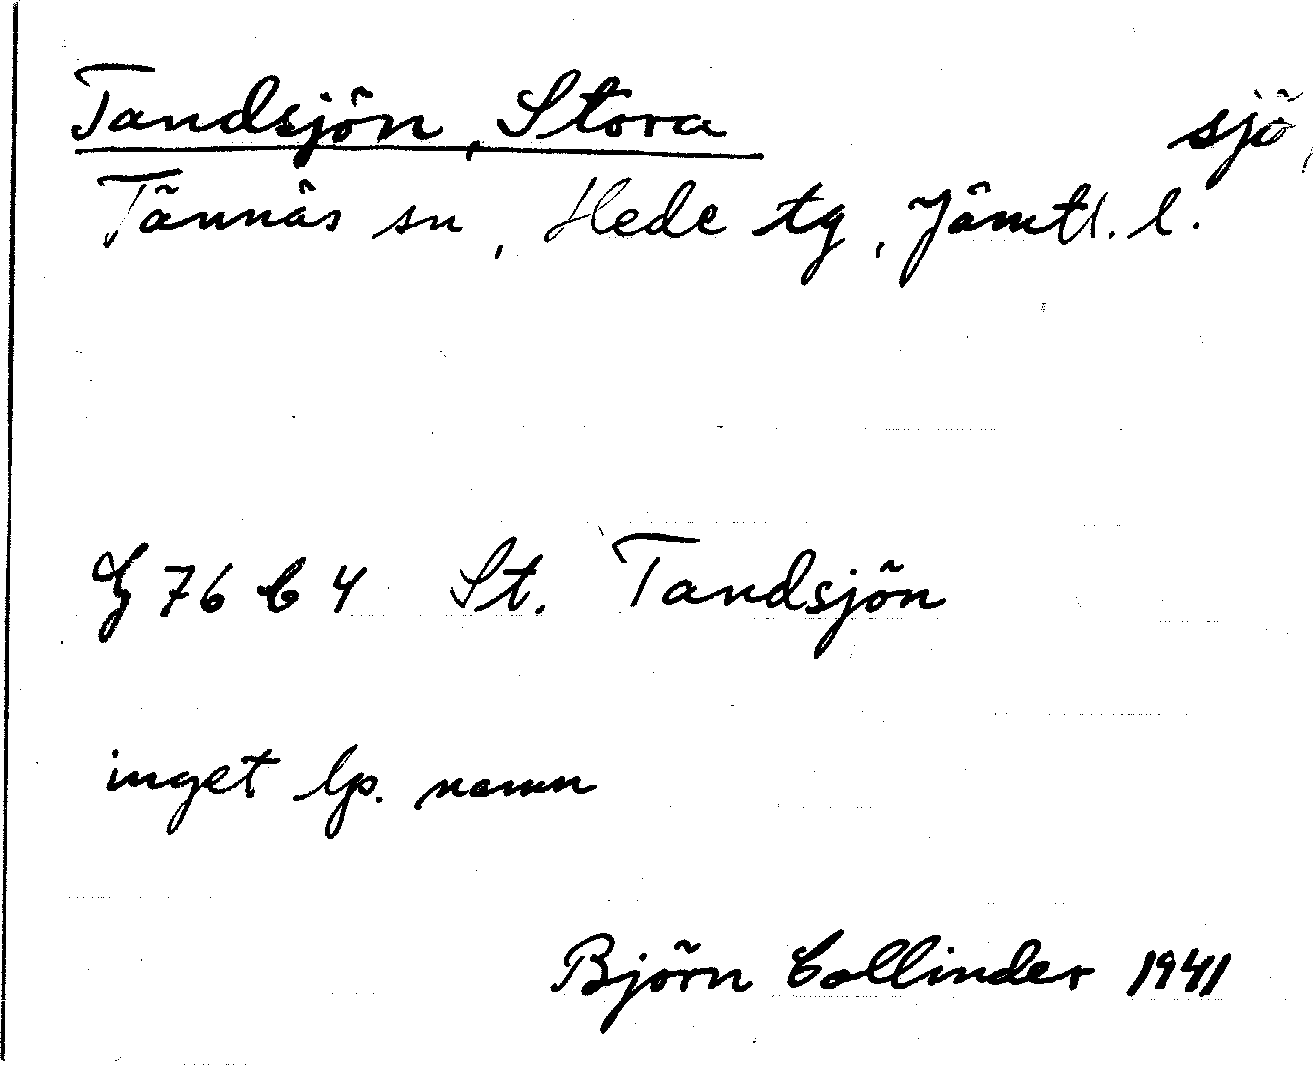 Tandsjön, Stora sjö,
Tännäs sn, Hede tg, Jämtl. l.
G 76 b 4 St. Tandsjön
inget lp. namn
Björn Collinder 1941